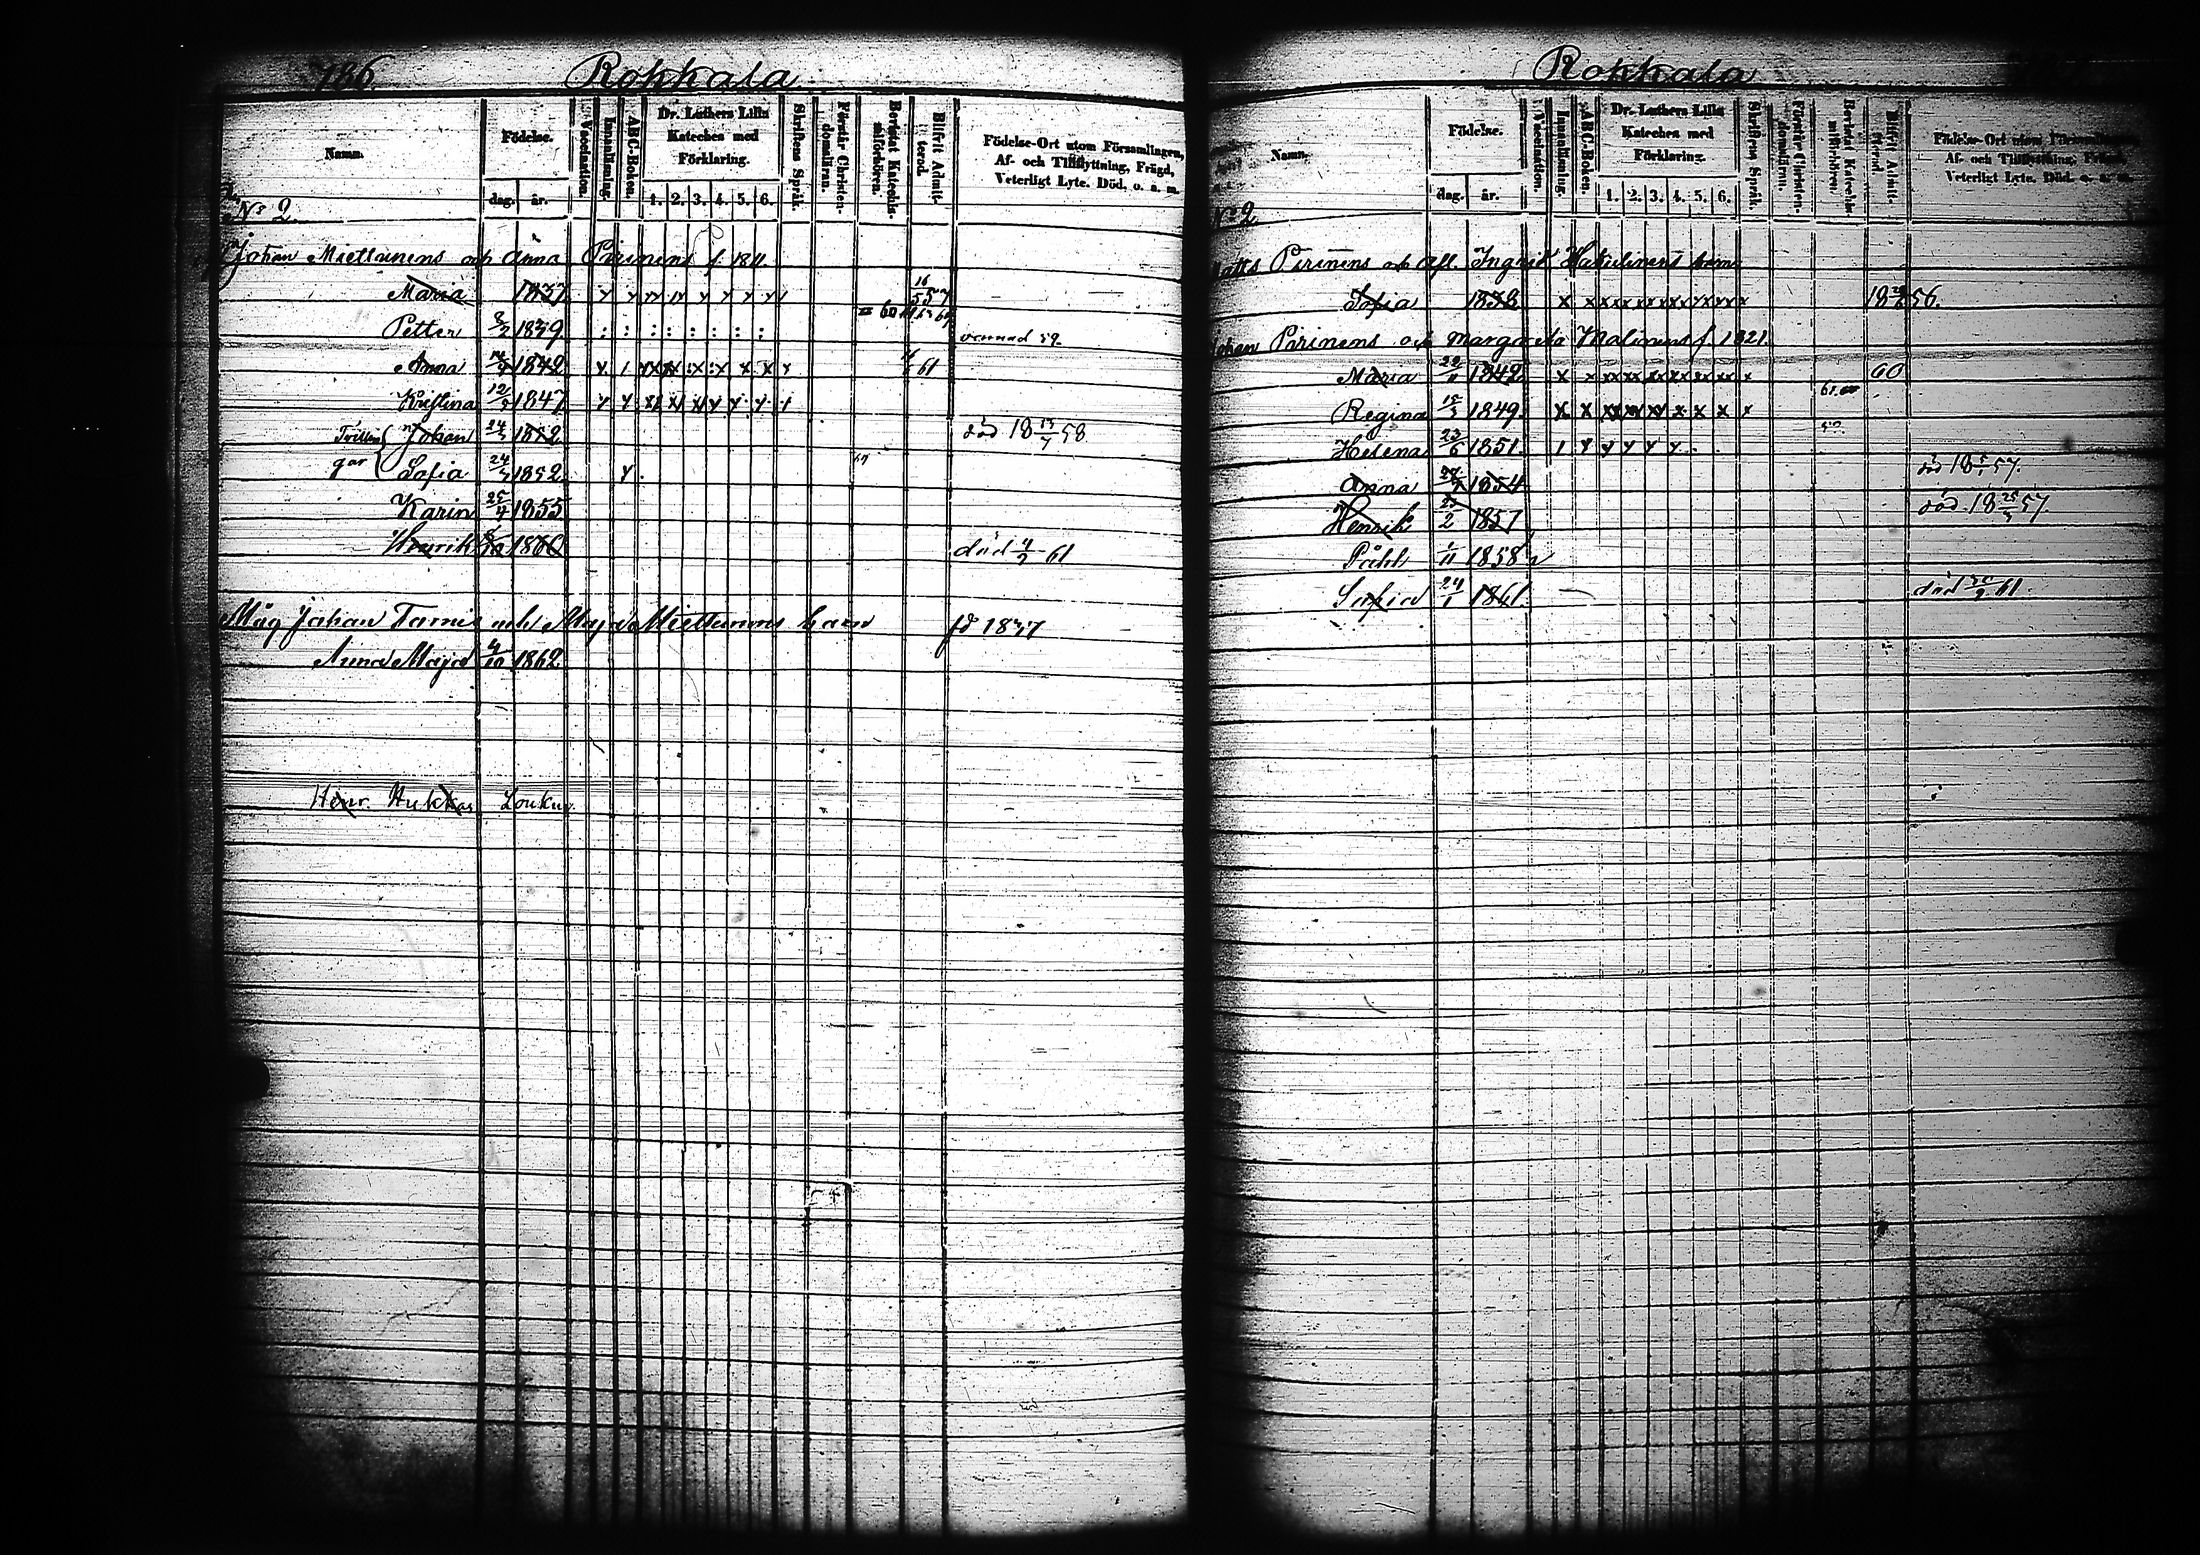 186.
Rokkala
Namn.
Födelse.
dag. år.
Vaccination.
Innanläsning.
ABC-Boken.
Dr. Luthers Lilla Kateches med Förklaring.
1. 2. 3. 4. 5. 6.
Skriftens Språk.
Förstår Christendomsläran.
Bevistat Katechismiförhören.
Blifvit Admitterad.
Födelse-Ort utom Församlingen, Af- och Tillflyttning, Frägd, Veterligt Lyte. Död. o. a. m.
No 2.
Johan Miettunens och Anna Pirinens f. 1811.
Maria 1837
Petter 8/2 1839 : : : : : : : : vannad 59.
Anna 14/4 1842 61
Kristina 12/3 1847
Trillingar
Johan 24/3 1852 död 18 13/7 58
Sofia 24/3 1852
Karin 25/4 1855
Henrik 1860 död 4/2 61
Måg Johan Tarnis och Maja Miettunens barn fd 1837
Anna Maja 4/10 1862
Henr. Hukkas Loukus.
Rokkala
Namn.
Födelse.
dag. år.
Vaccination.
Innanläsning.
ABC-Boken.
Dr. Luthers Lilla Kateches med Förklaring.
1. 2. 3. 4. 5. 6.
Skriftens Språk.
Förstår Christendomsläran.
Bevistat Katechismiförhören.
Blifvit Admitterad.
Födelse-Ort utom Församlingen, Af- och Tillflyttning, Frägd, Veterligt Lyte. Död. o. a. m.
No 2
Matts Pirinens och afl. Ingrid Hakulinens barn
Sofia 1838 56.
Johan Pirinens och Margareta Malinens f. 1821.
Maria 22/11 1842 60
Regina 15/3 1849
Helena 23/6 1851
Anna 1854 död 18 5/1 57.
Henrik 23/2 1857 död 18 25/3 57.
Påhl 1/11 1858
Sofia 24/1 1861 död 61